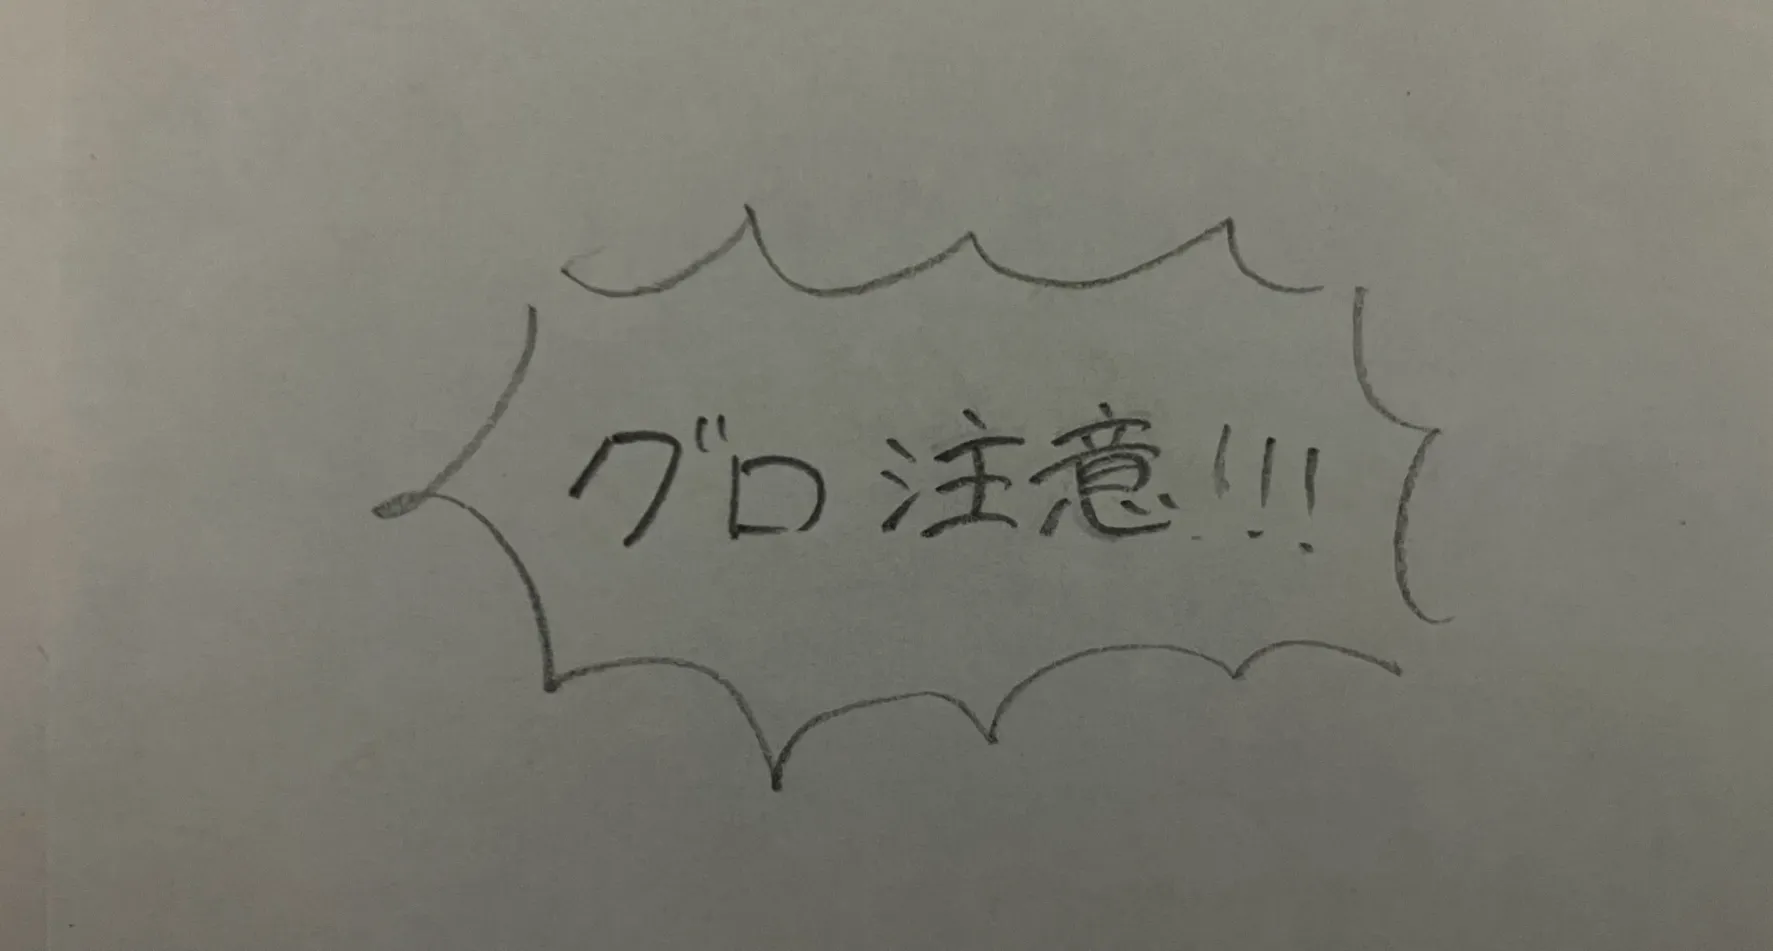 グロ注意!!!